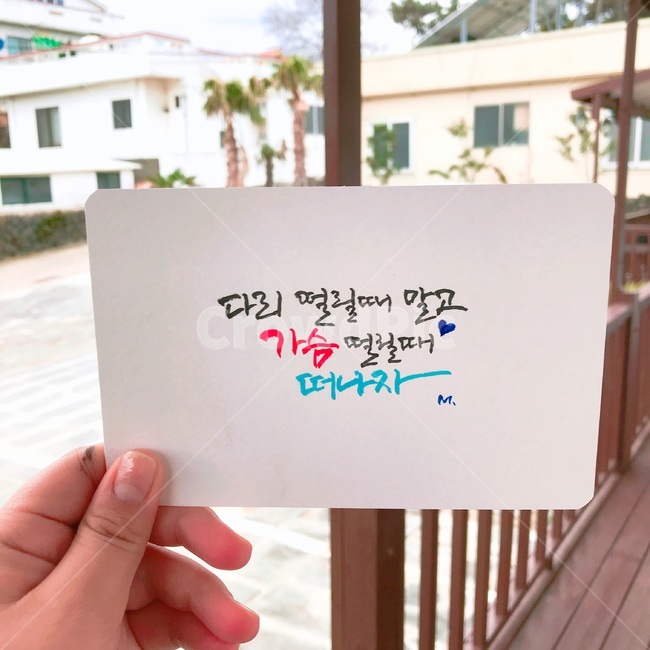 다리 떨릴때 말고
가슴 떨릴때
떠나자
M.
CrowdPic